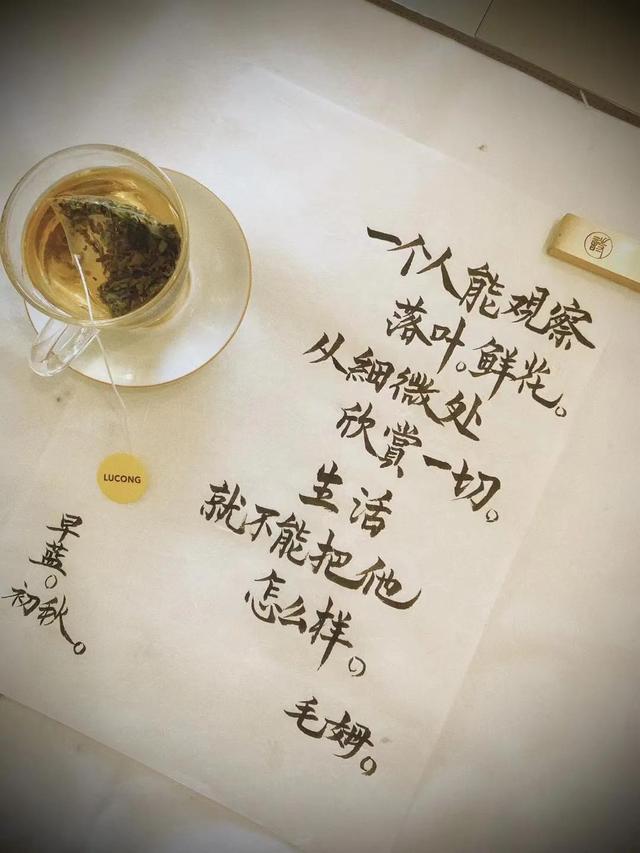 一个人能观察
落叶。鲜花。
从細微处
欣賞一切。
生活
就不能把他
怎么样。
毛姆。
早蓝。
初秋。
LUCONG